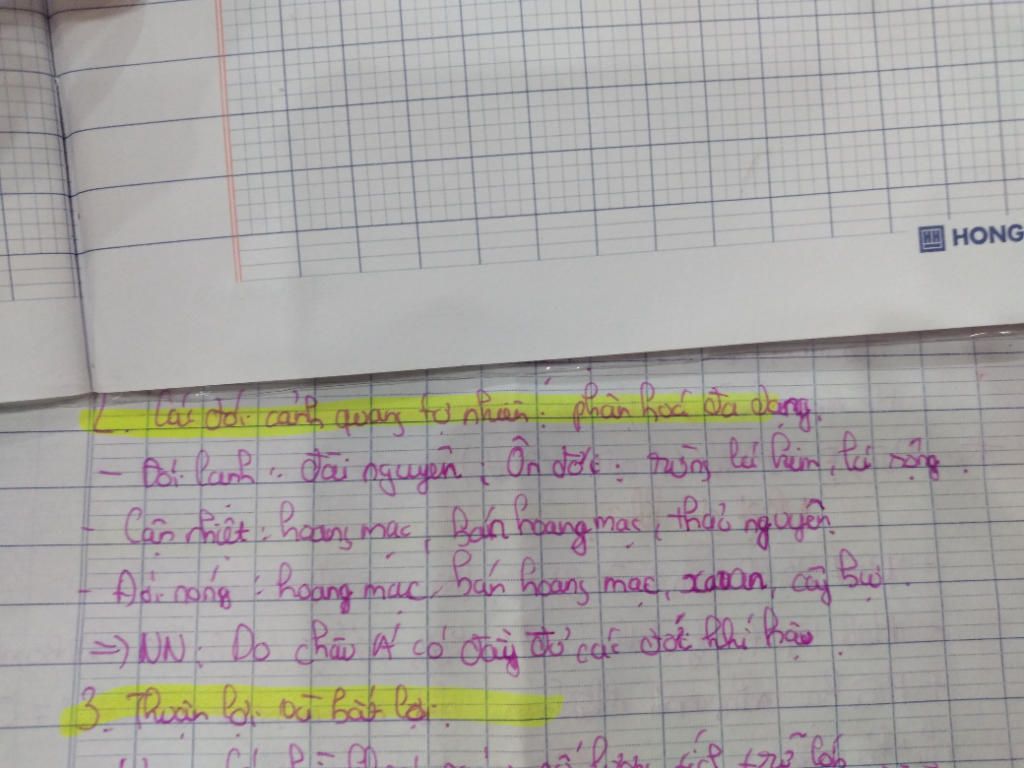 HONG
2. Các đới cảnh quang tự nhiên: phân hoá đa dạng.
- Đới lạnh: đài nguyên, Ôn đới: rừng lá kim, lá rộng.
- Cận nhiệt: hoang mạc, Bán hoang mạc, thảo nguyên.
- Đới nóng: hoang mạc, bán hoang mạc, xavan, cây bụi.
=> NN: Do châu Á có đầy đủ các đới khí hậu.
3. Thuận lợi và bất lợi.